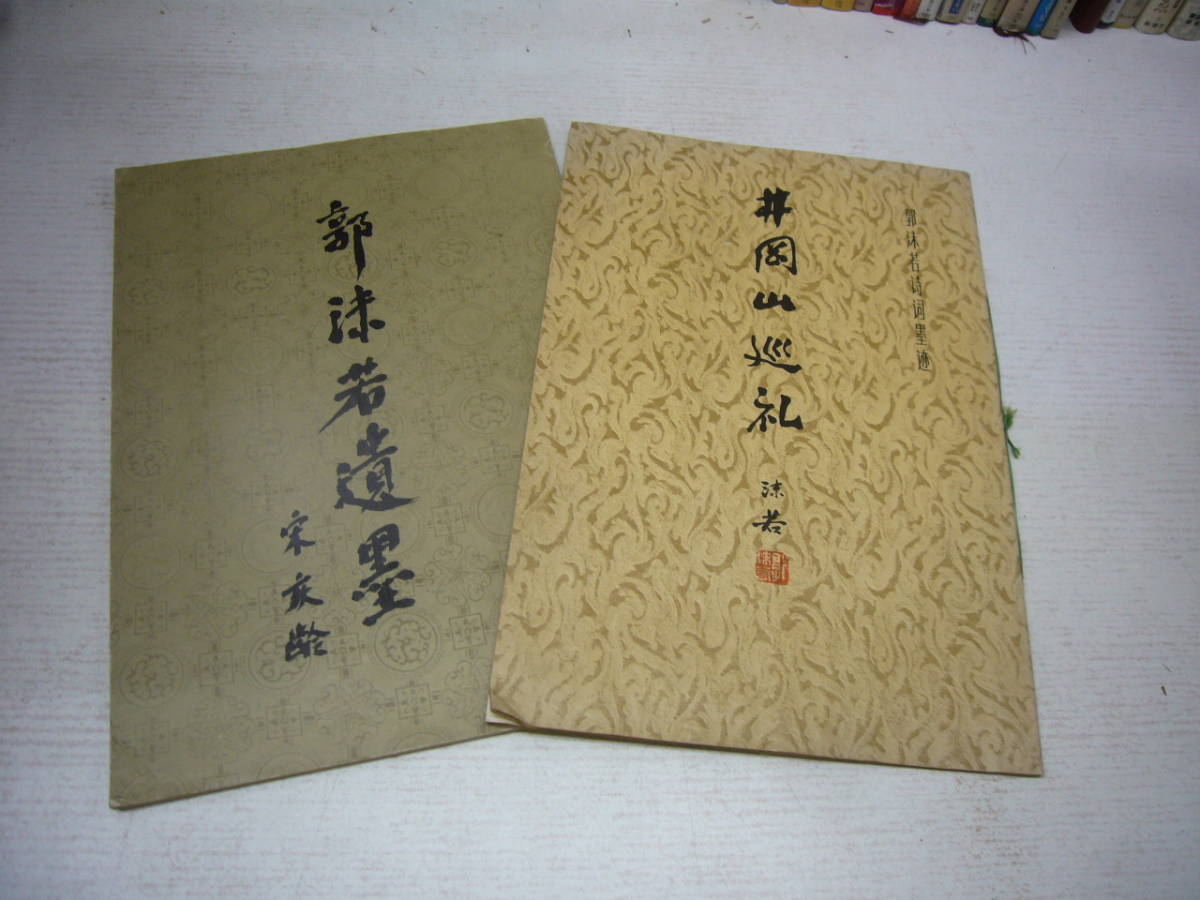 郭沫若遺墨
宋庆龄
郭沫若诗词墨迹
井岡山巡礼
沫若